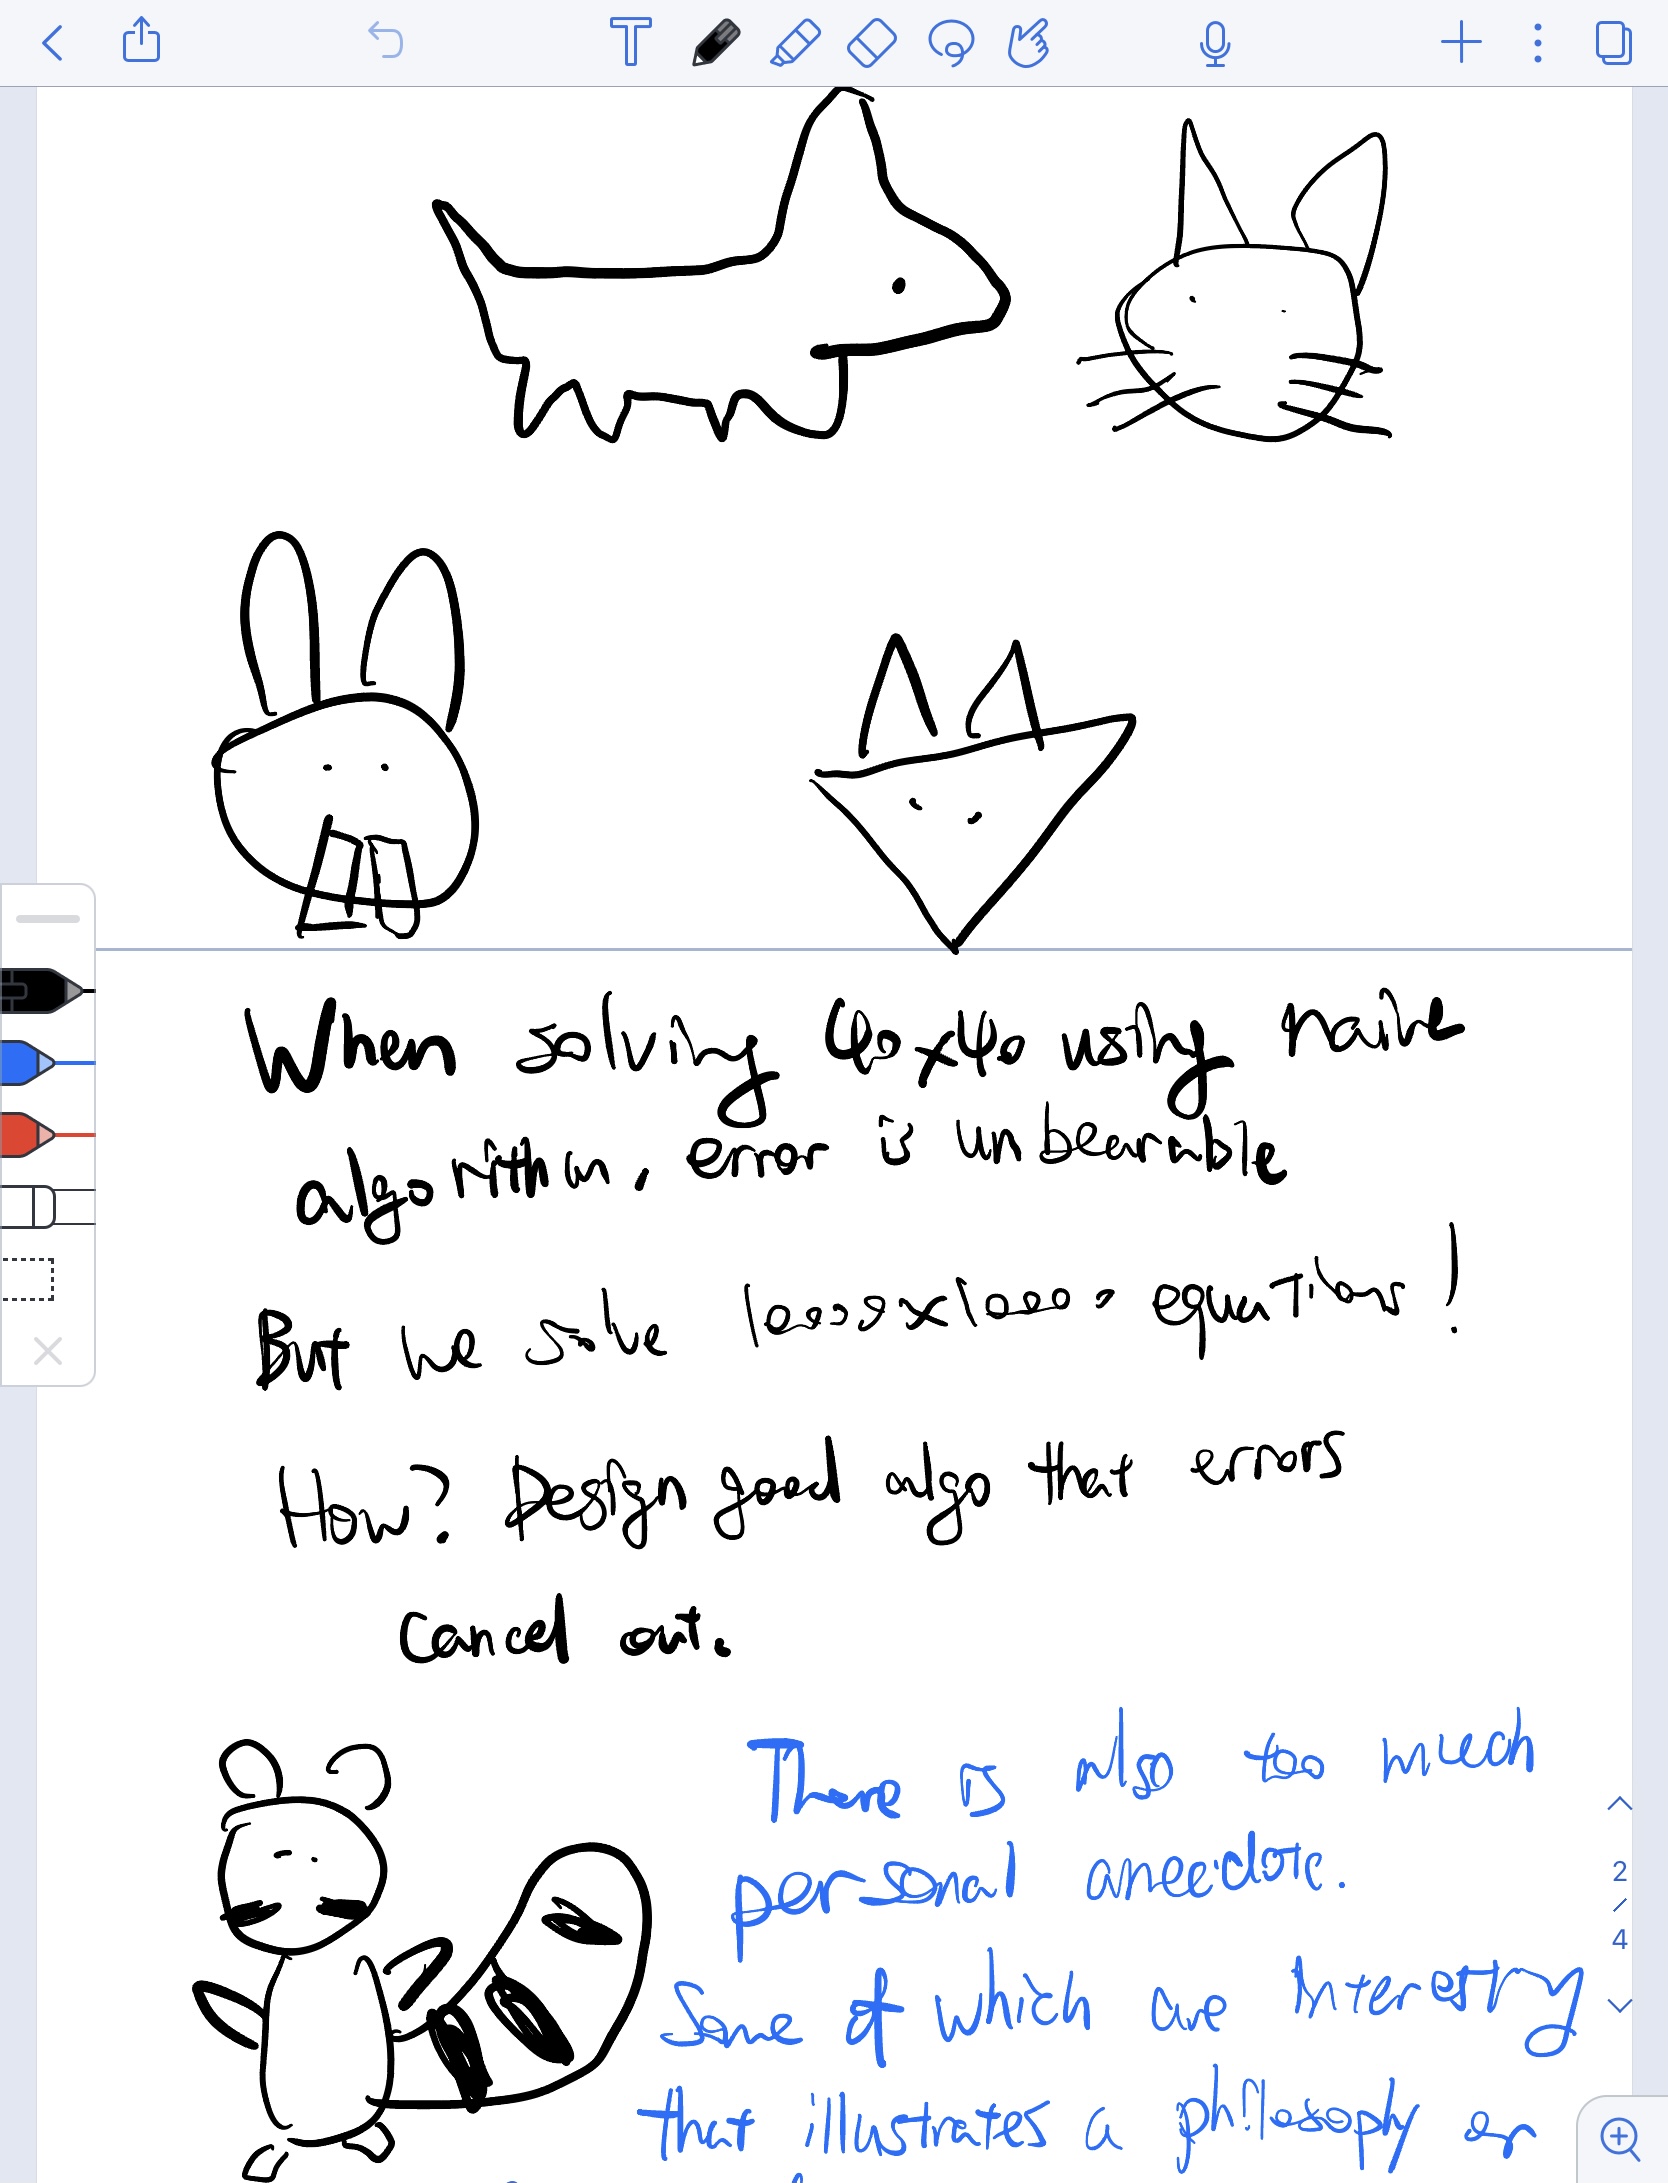 When solving 40x40 using naive
algorithm, error is unbearable
But we solve 10000x10000 equations!
How? Design good algo that errors
cancel out.
There is also too much
personal anecdote.
Some of which are interesting
that illustrates a philosophy or
2
/
4